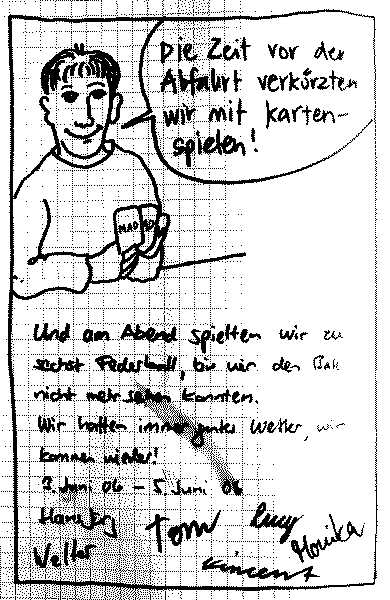 Die Zeit vor der
Abfahrt verkürzten
wir mit Karten-
spielen!
MAD
Und am Abend spielten wir zu
sechst Federball, bis wir den Ball
nicht mehr sehen konnten.
Wir hatten immer gutes Wetter, wir
kommen wieder!
Juni 06 – 5. Juni 06
Hansjörg
Tom
Lucy
Monika
Velter
Vincent